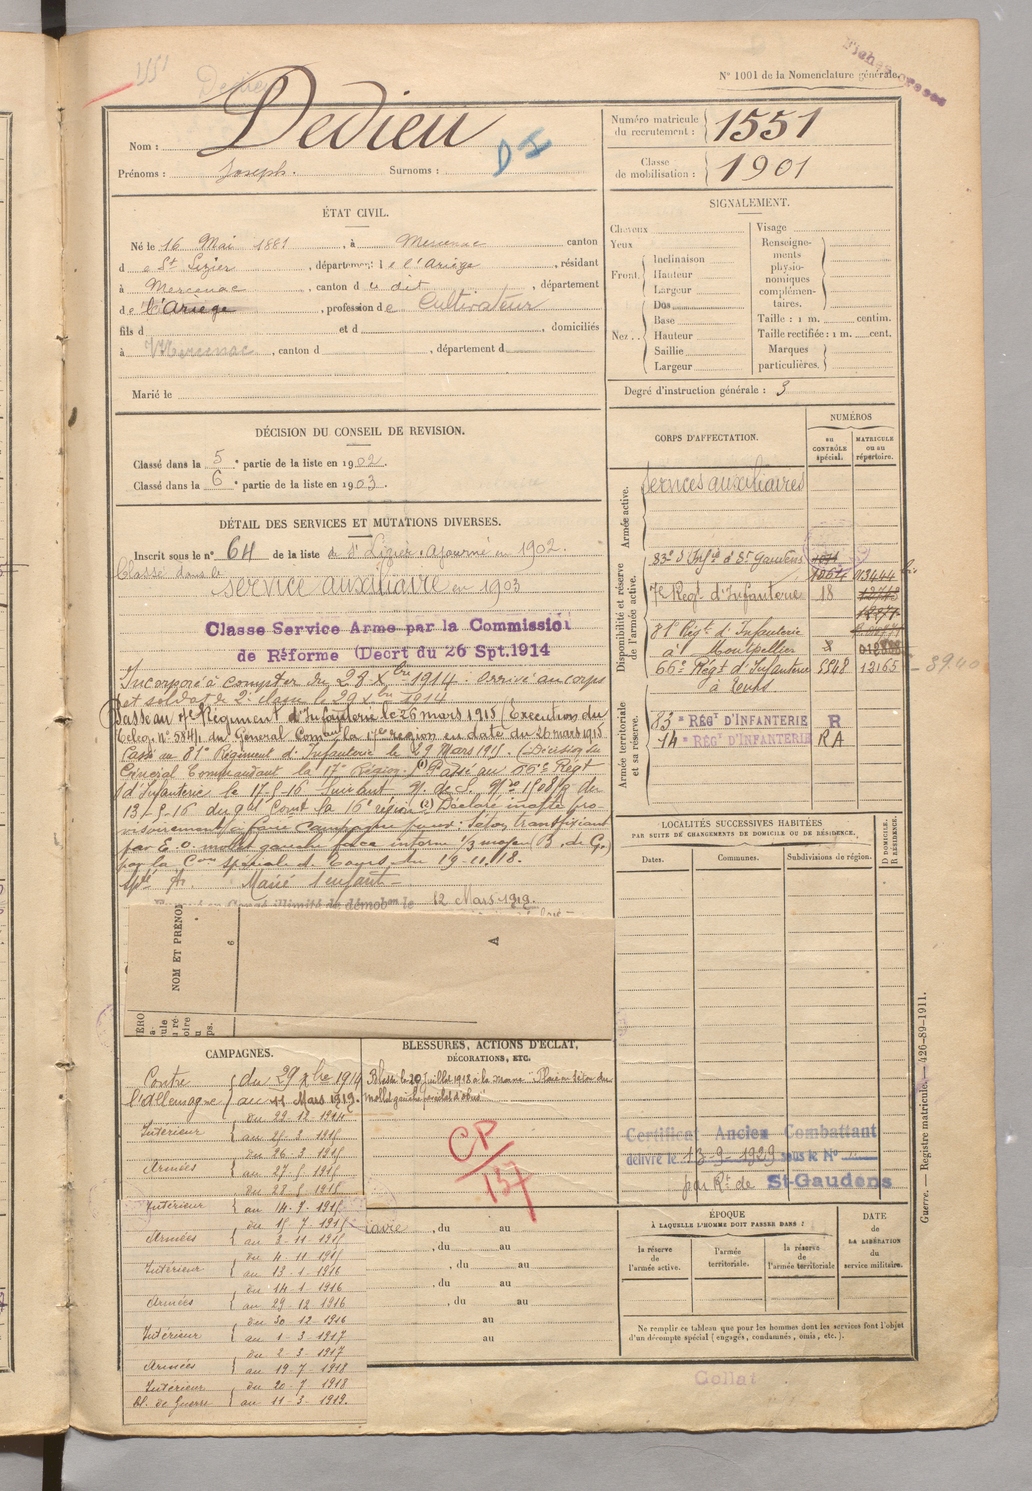 N° 1001 de la Nomenclature générale.
1551
Nom : Dedieu
D I
Prénoms : Joseph. Surnoms :
Numéro matricule du recrutement : 1551
Classe de mobilisation : 1901
ÉTAT CIVIL.
Né le 16 Mai 1881, à Mercenac canton
de St Lizier, département de l'Ariège, résidant
à Mercenac, canton du dit, département
de l'Ariège, profession de Cultivateur
fils d et d , domiciliés
à Mercenac, canton d , département d
Marié le
SIGNALEMENT.
Cheveux
Yeux
Front
Inclinaison
Hauteur
Largeur
Nez
Dos
Base
Hauteur
Saillie
Largeur
Visage
Renseignements physionomiques complémentaires.
Taille : 1 m. centim.
Taille rectifiée : 1 m. cent.
Marques particulières.
Degré d'instruction générale : 3
DÉCISION DU CONSEIL DE REVISION.
Classé dans la 5e partie de la liste en 1902.
Classé dans la 6e partie de la liste en 1903.
DÉTAIL DES SERVICES ET MUTATIONS DIVERSES.
Inscrit sous le n° 64 de la liste de St Lizier. Ajourné en 1902.
Classé dans le service auxiliaire en 1903
Classe Service Arme par la Commission
de Réforme (Decrt du 26 Spt.1914
Incorporé à compter du 28 Xbre 1914. Arrivé au corps
et soldat de 2e classe le 29 Xbre 1914
Passé au 7e Régiment d'Infanterie le 26 mars 1915 (Exécution du
Telegr. N° 584/1 du Général Comdt la 17e région en date du 26 mars 1915
Passé au 81e Régiment d'Infanterie le 29 Mars 1915. (Décision du
Général Commandant la 17e Région. (1) Passé au 66e Régt
d'Infanterie le 17-5-16 Suivant N. de S. N° 1508/2 du
13-5-16 du gal Comt la 16e région (2) Déclaré inapte pro-
visoirement à faire campagne pour : Séton transfixiant
par E. O. mollet gauche face interne 1/3 moyen (B. de G.)
par la Con spéciale de Tours du 19-11-18.
Marié 1 enfant
Congé illimité de démobon le 12 Mars 1919.
NOM ET PRÉNOM
6
A
CORPS D'AFFECTATION.
NUMÉROS
au CONTRÔLE spécial.
MATRICULE ou au répertoire.
Armée active.
Services auxiliaires
Disponibilité et réserve de l'armée active.
83e d'Infie à St Gaudens
7e Régt d'Infanterie 18
81e Régt d'Infanterie
à Montpellier
66e Régt d'Infanterie 5548 13165
à Tours
Armée territoriale et sa réserve
83e RÉGT D'INFANTERIE R
74e RÉGT D'INFANTERIE RA
LOCALITÉS SUCCESSIVES HABITÉES
PAR SUITE DE CHANGEMENTS DE DOMICILE OU DE RÉSIDENCE.
Dates. Communes. Subdivisions de région. D DOMICILE. R RÉSIDENCE.
Certificat Ancien Combattant
délivré le 13-9-1929 sous le N°
par Rt de St-Gaudens
CAMPAGNES.
Contre l'Allemagne du 29 Xbre 1914
au 11 Mars 1919.
Intérieur du 29-12-1914
au 25-3-1915
Armées du 26-3-1915
au 27-5-1915
Intérieur du 28-5-1915
au 14-7-1915
Armées du 15-7-1915
au 3-11-1915
Intérieur du 4-11-1915
au 13-1-1916
Armées du 14-1-1916
au 29-12-1916
Intérieur du 30-12-1916
au 1-3-1917
Armées du 2-3-1917
au 19-7-1918
Intérieur du 20-7-1918
Bl. de Guerre au 11-3-1919.
BLESSURES, ACTIONS D'ÉCLAT, DÉCORATIONS, ETC.
Blessé le 20 Juillet 1918 à la Marne "Plaie en séton du
mollet gauche par éclat d'obus"
CP
137
, du au
, du au
, du au
, du au
, du au
au
au
ÉPOQUE
À LAQUELLE L'HOMME DOIT PASSER DANS :
la réserve de l'armée active.
l'armée territoriale.
la réserve de l'armée territoriale
DATE de LA LIBÉRATION du service militaire.
Ne remplir ce tableau que pour les hommes dont les services font l'objet
d'un décompte spécial (engagés, condamnés, omis, etc.).
Guerre. — Registre matricule. — 426-89-1911.
Collat